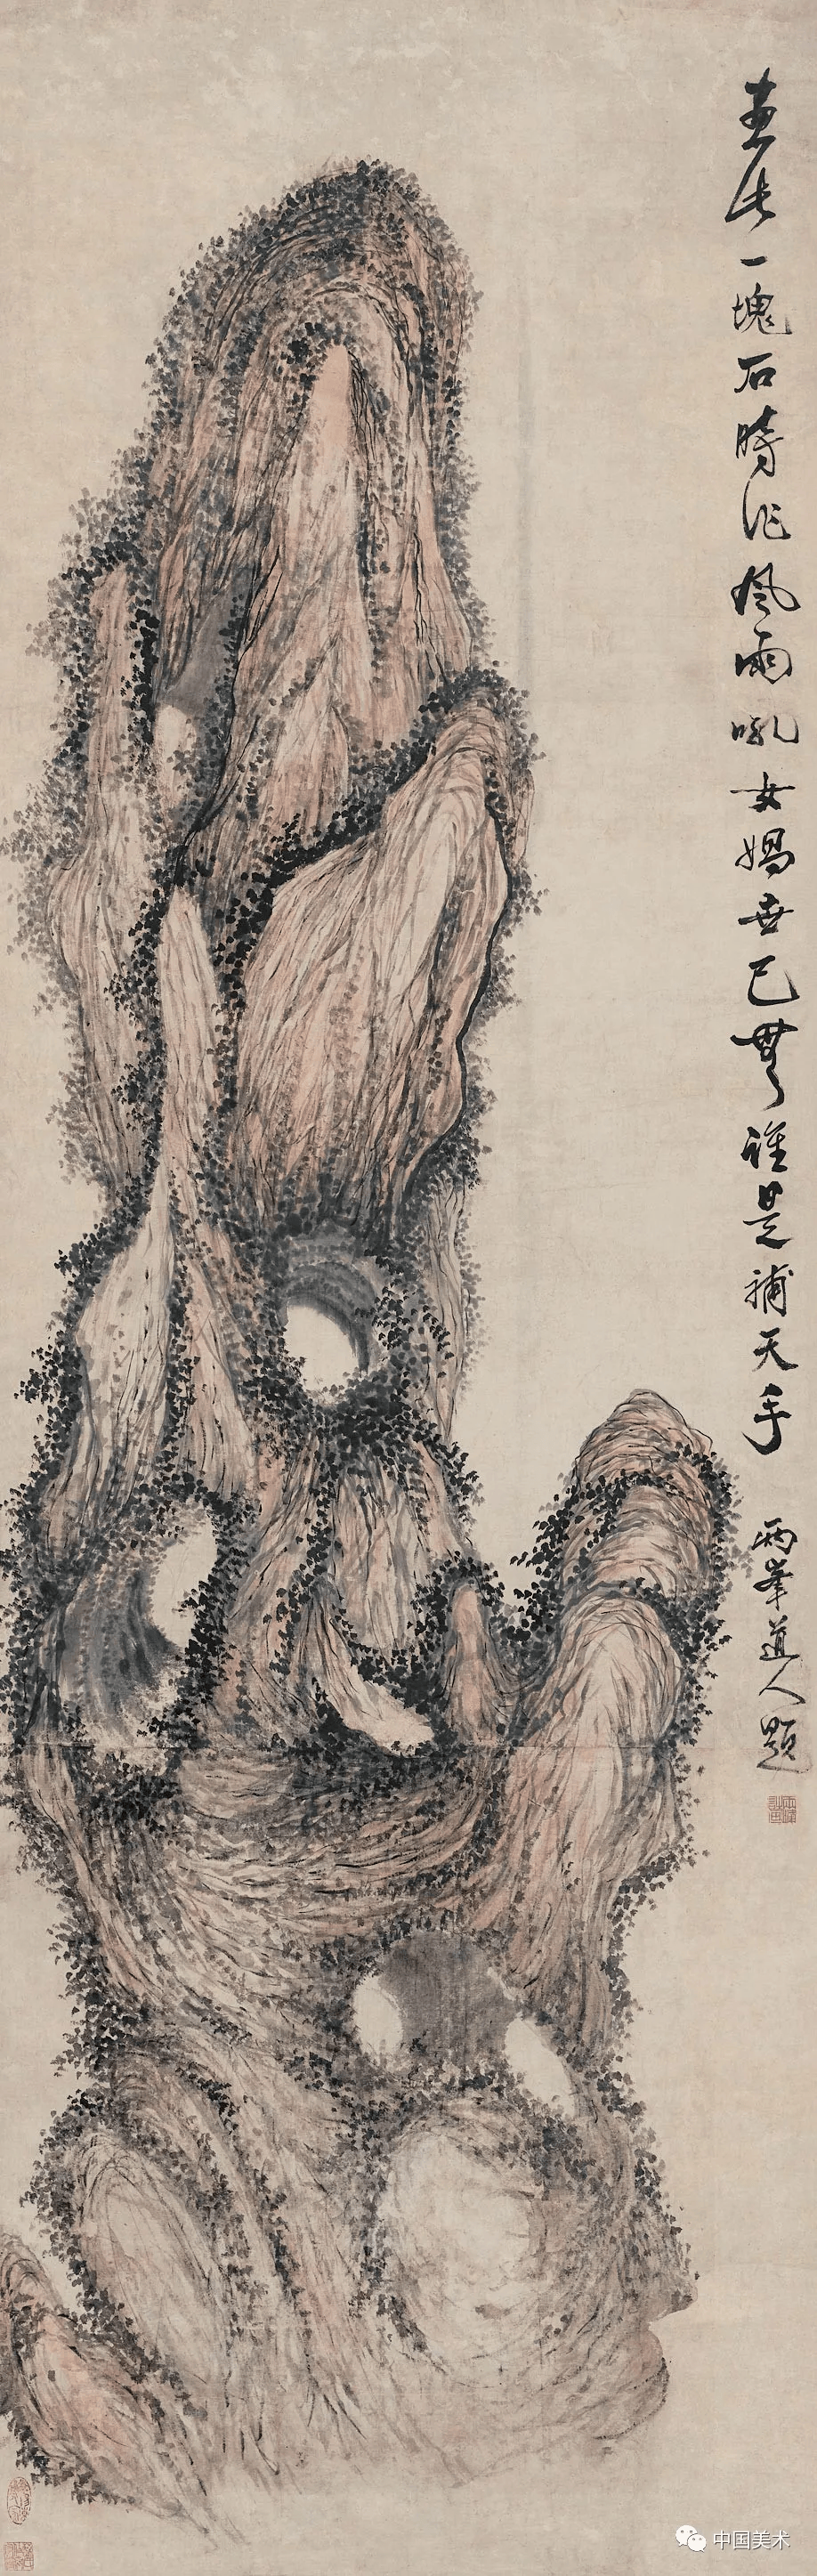 画此一塊石時作風雨吼女媧世已無誰是補天手
兩峯道人題
中国美术